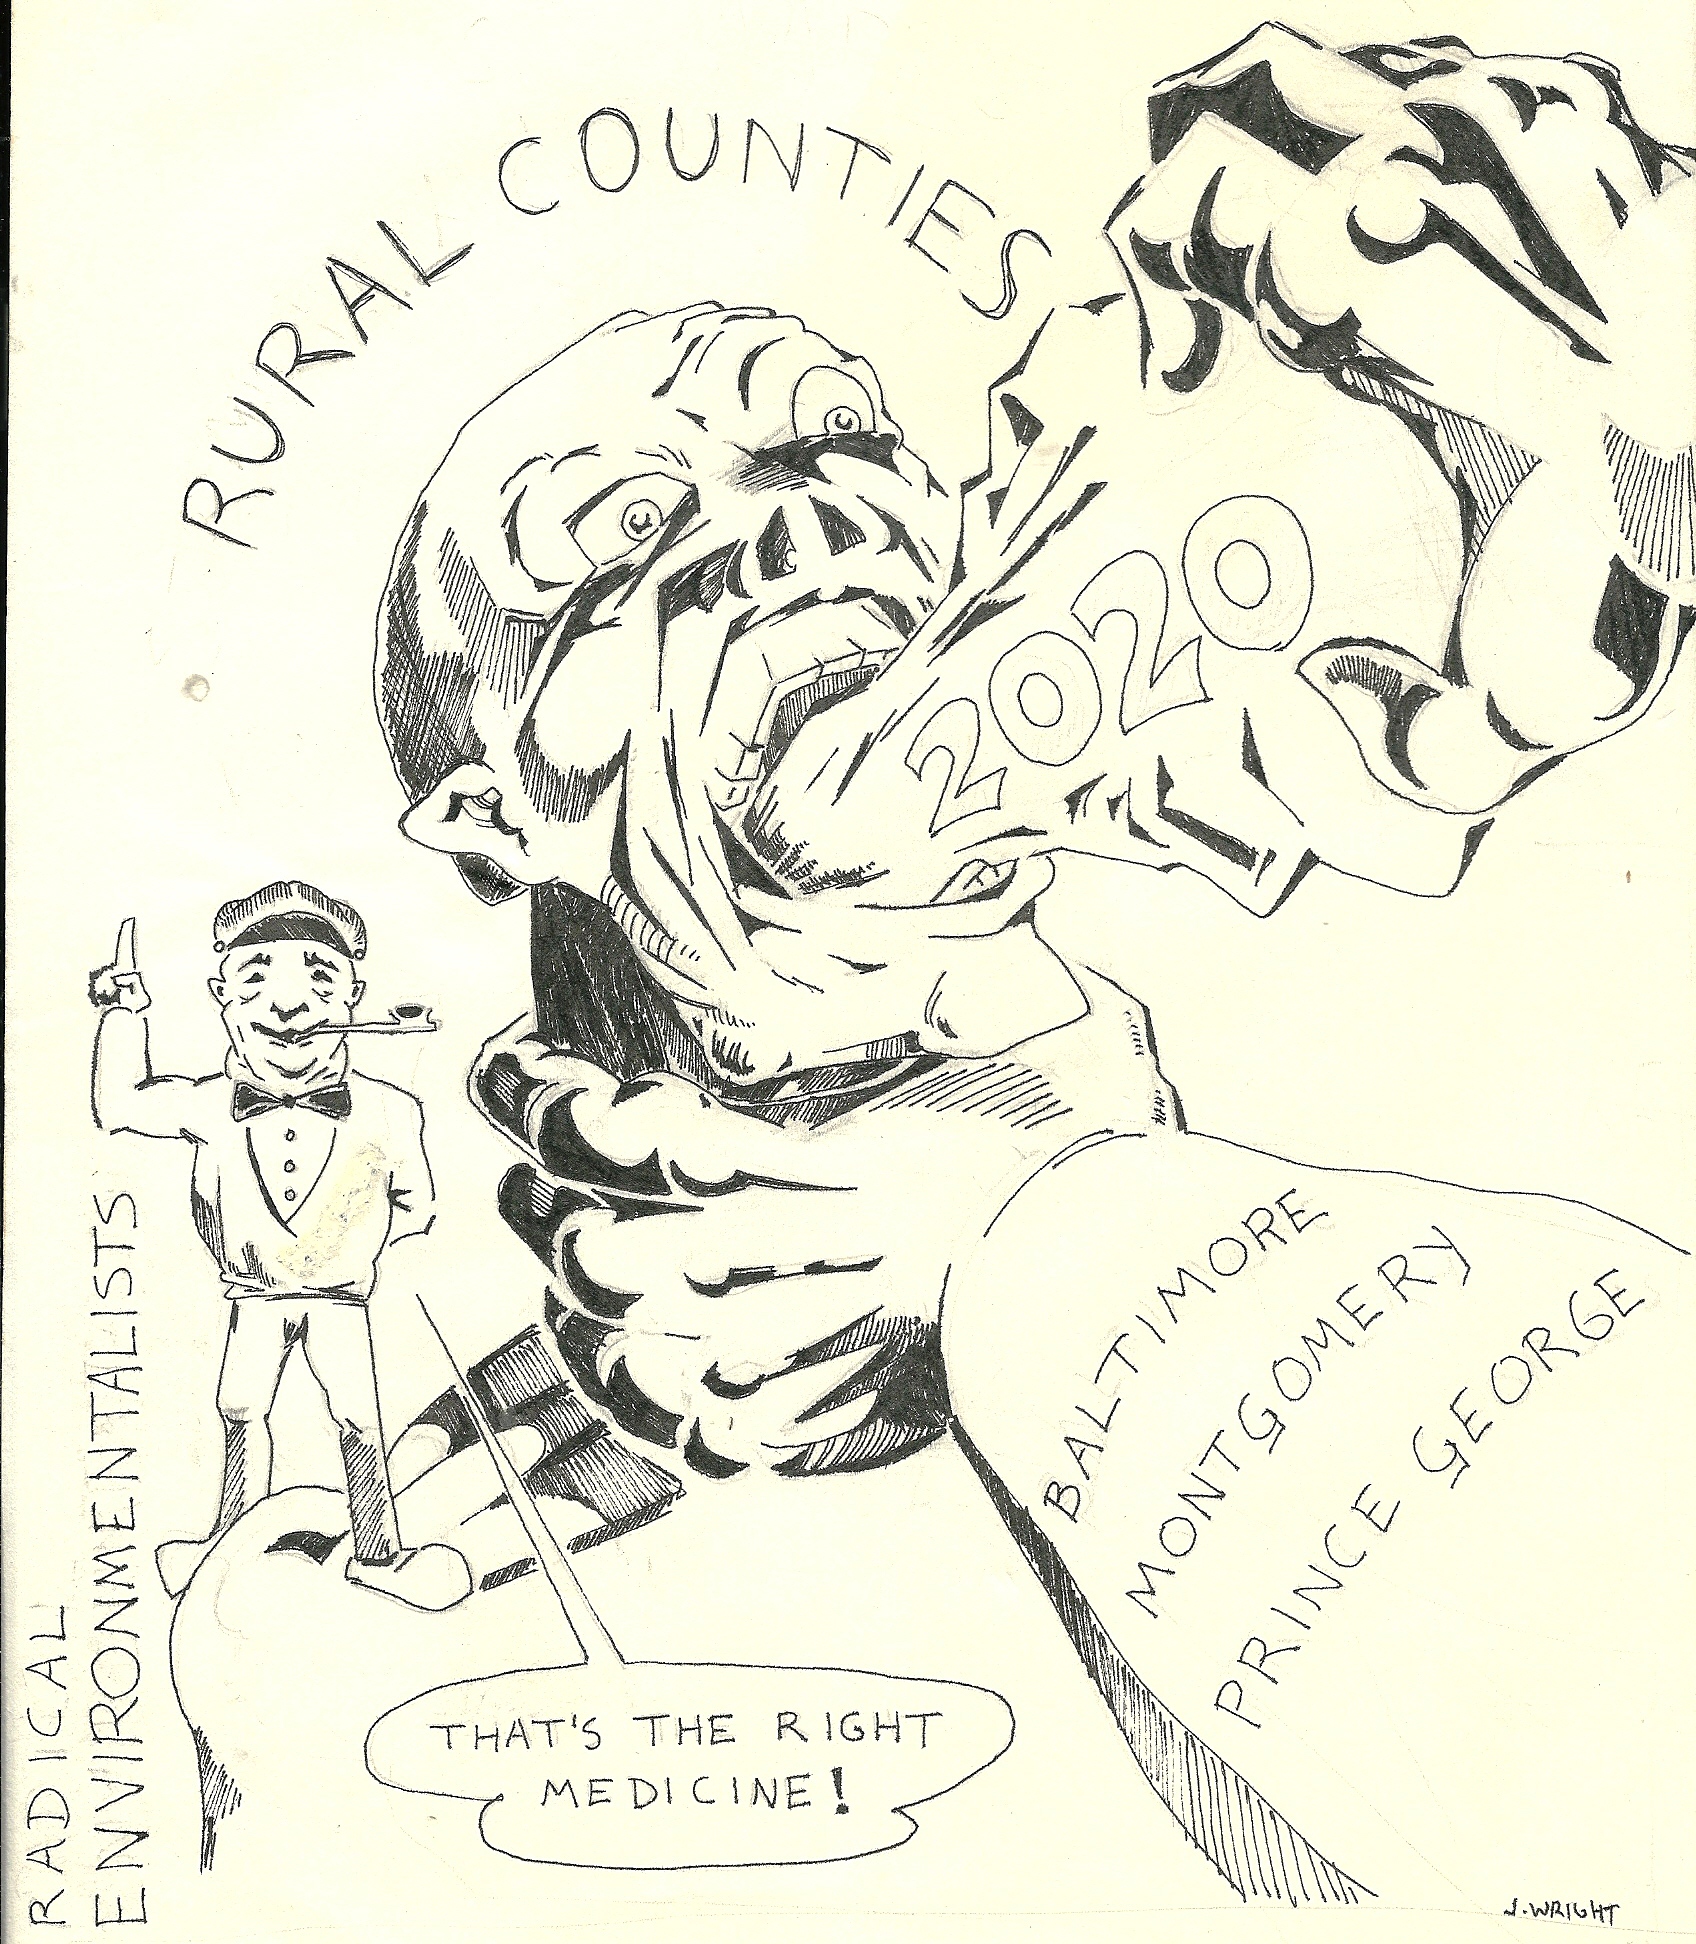 RURAL COUNTIES
2020
RADICAL
ENVIRONMENTALISTS
BALTIMORE
MONTGOMERY
PRINCE GEORGE
THAT'S THE RIGHT
MEDICINE!
J.WRIGHT